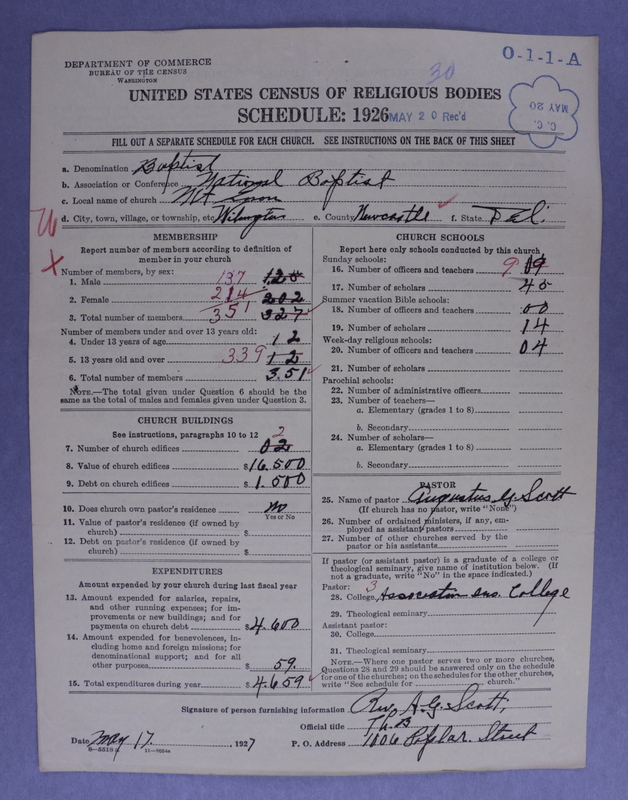 O-1-1-A
DEPARTMENT OF COMMERCE
BUREAU OF THE CENSUS
WASHINGTON
30
C. C.
MAY 20
UNITED STATES CENSUS OF RELIGIOUS BODIES
SCHEDULE: 1926 MAY 20 Rec'd
FILL OUT A SEPARATE SCHEDULE FOR EACH CHURCH. SEE INSTRUCTIONS ON THE BACK OF THIS SHEET
a. Denomination Baptist
b. Association or Conference National Baptist
c. Local name of church Mt
d. City, town, village, or township, etc. Wilmington e. County Newcastle f. State Del.
MEMBERSHIP
Report number of members according to definition of
member in your church
Number of members, by sex:
1. Male 137 125
2. Female 214 202
3. Total number of members 351 327
Number of members under and over 13 years old:
4. Under 13 years of age 12
5. 13 years old and over 339 12
6. Total number of members 351
NOTE.—The total given under Question 6 should be the
same as the total of males and females given under Question 3.
CHURCH BUILDINGS
See instructions, paragraphs 10 to 12
7. Number of church edifices 2 02
8. Value of church edifices $16,500
9. Debt on church edifices $1,500
10. Does church own pastor's residence no
Yes or No
11. Value of pastor's residence (if owned by
church) $
12. Debt on pastor's residence (if owned by
church) $
EXPENDITURES
Amount expended by your church during last fiscal year
13. Amount expended for salaries, repairs,
and other running expenses; for im-
provements or new buildings; and for
payments on church debt $4,600
14. Amount expended for benevolences, in-
cluding home and foreign missions; for
denominational support; and for all
other purposes $59.
15. Total expenditures during year $4,659
CHURCH SCHOOLS
Report here only schools conducted by this church
Sunday schools:
16. Number of officers and teachers 9 09
17. Number of scholars 45
Summer vacation Bible schools:
18. Number of officers and teachers 00
19. Number of scholars 14
Week-day religious schools:
20. Number of officers and teachers 04
21. Number of scholars
Parochial schools:
22. Number of administrative officers
23. Number of teachers—
a. Elementary (grades 1 to 8)
b. Secondary
24. Number of scholars—
a. Elementary (grades 1 to 8)
b. Secondary
PASTOR
25. Name of pastor Augustus G. Scott
(If church has no pastor, write "None")
26. Number of ordained ministers, if any, em-
ployed as assistant pastors
27. Number of other churches served by the
pastor or his assistants
If pastor (or assistant pastor) is a graduate of a college or
theological seminary, give name of institution below. (If
not a graduate, write "No" in the space indicated.)
Pastor: 3
28. College College
29. Theological seminary
Assistant pastor:
30. College
31. Theological seminary
NOTE.—Where one pastor serves two or more churches,
Questions 28 and 29 should be answered only on the schedule
for one of the churches; on the schedules for the other churches,
write "See schedule for church."
Signature of person furnishing information Rev. A. G. Scott,
Official title Th. B
Date May 17. 1927 P. O. Address 1006 Poplar. Street
8-5518a 11-9654a